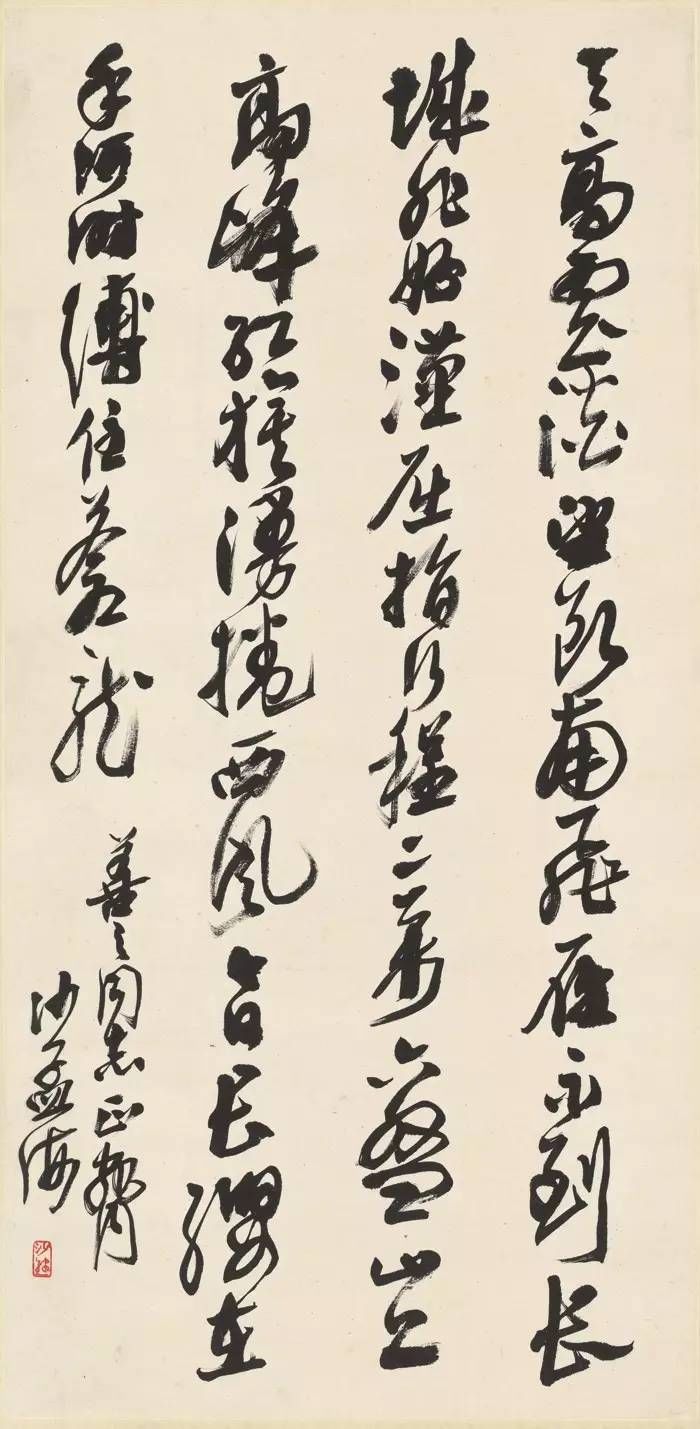 天高雲淡望斷南飛雁不到長
城非好漢屈指行程二萬六盤山上
高峰紅旗漫捲西風今日長纓在
手何時縛住蒼龍
善之同志正
沙孟海